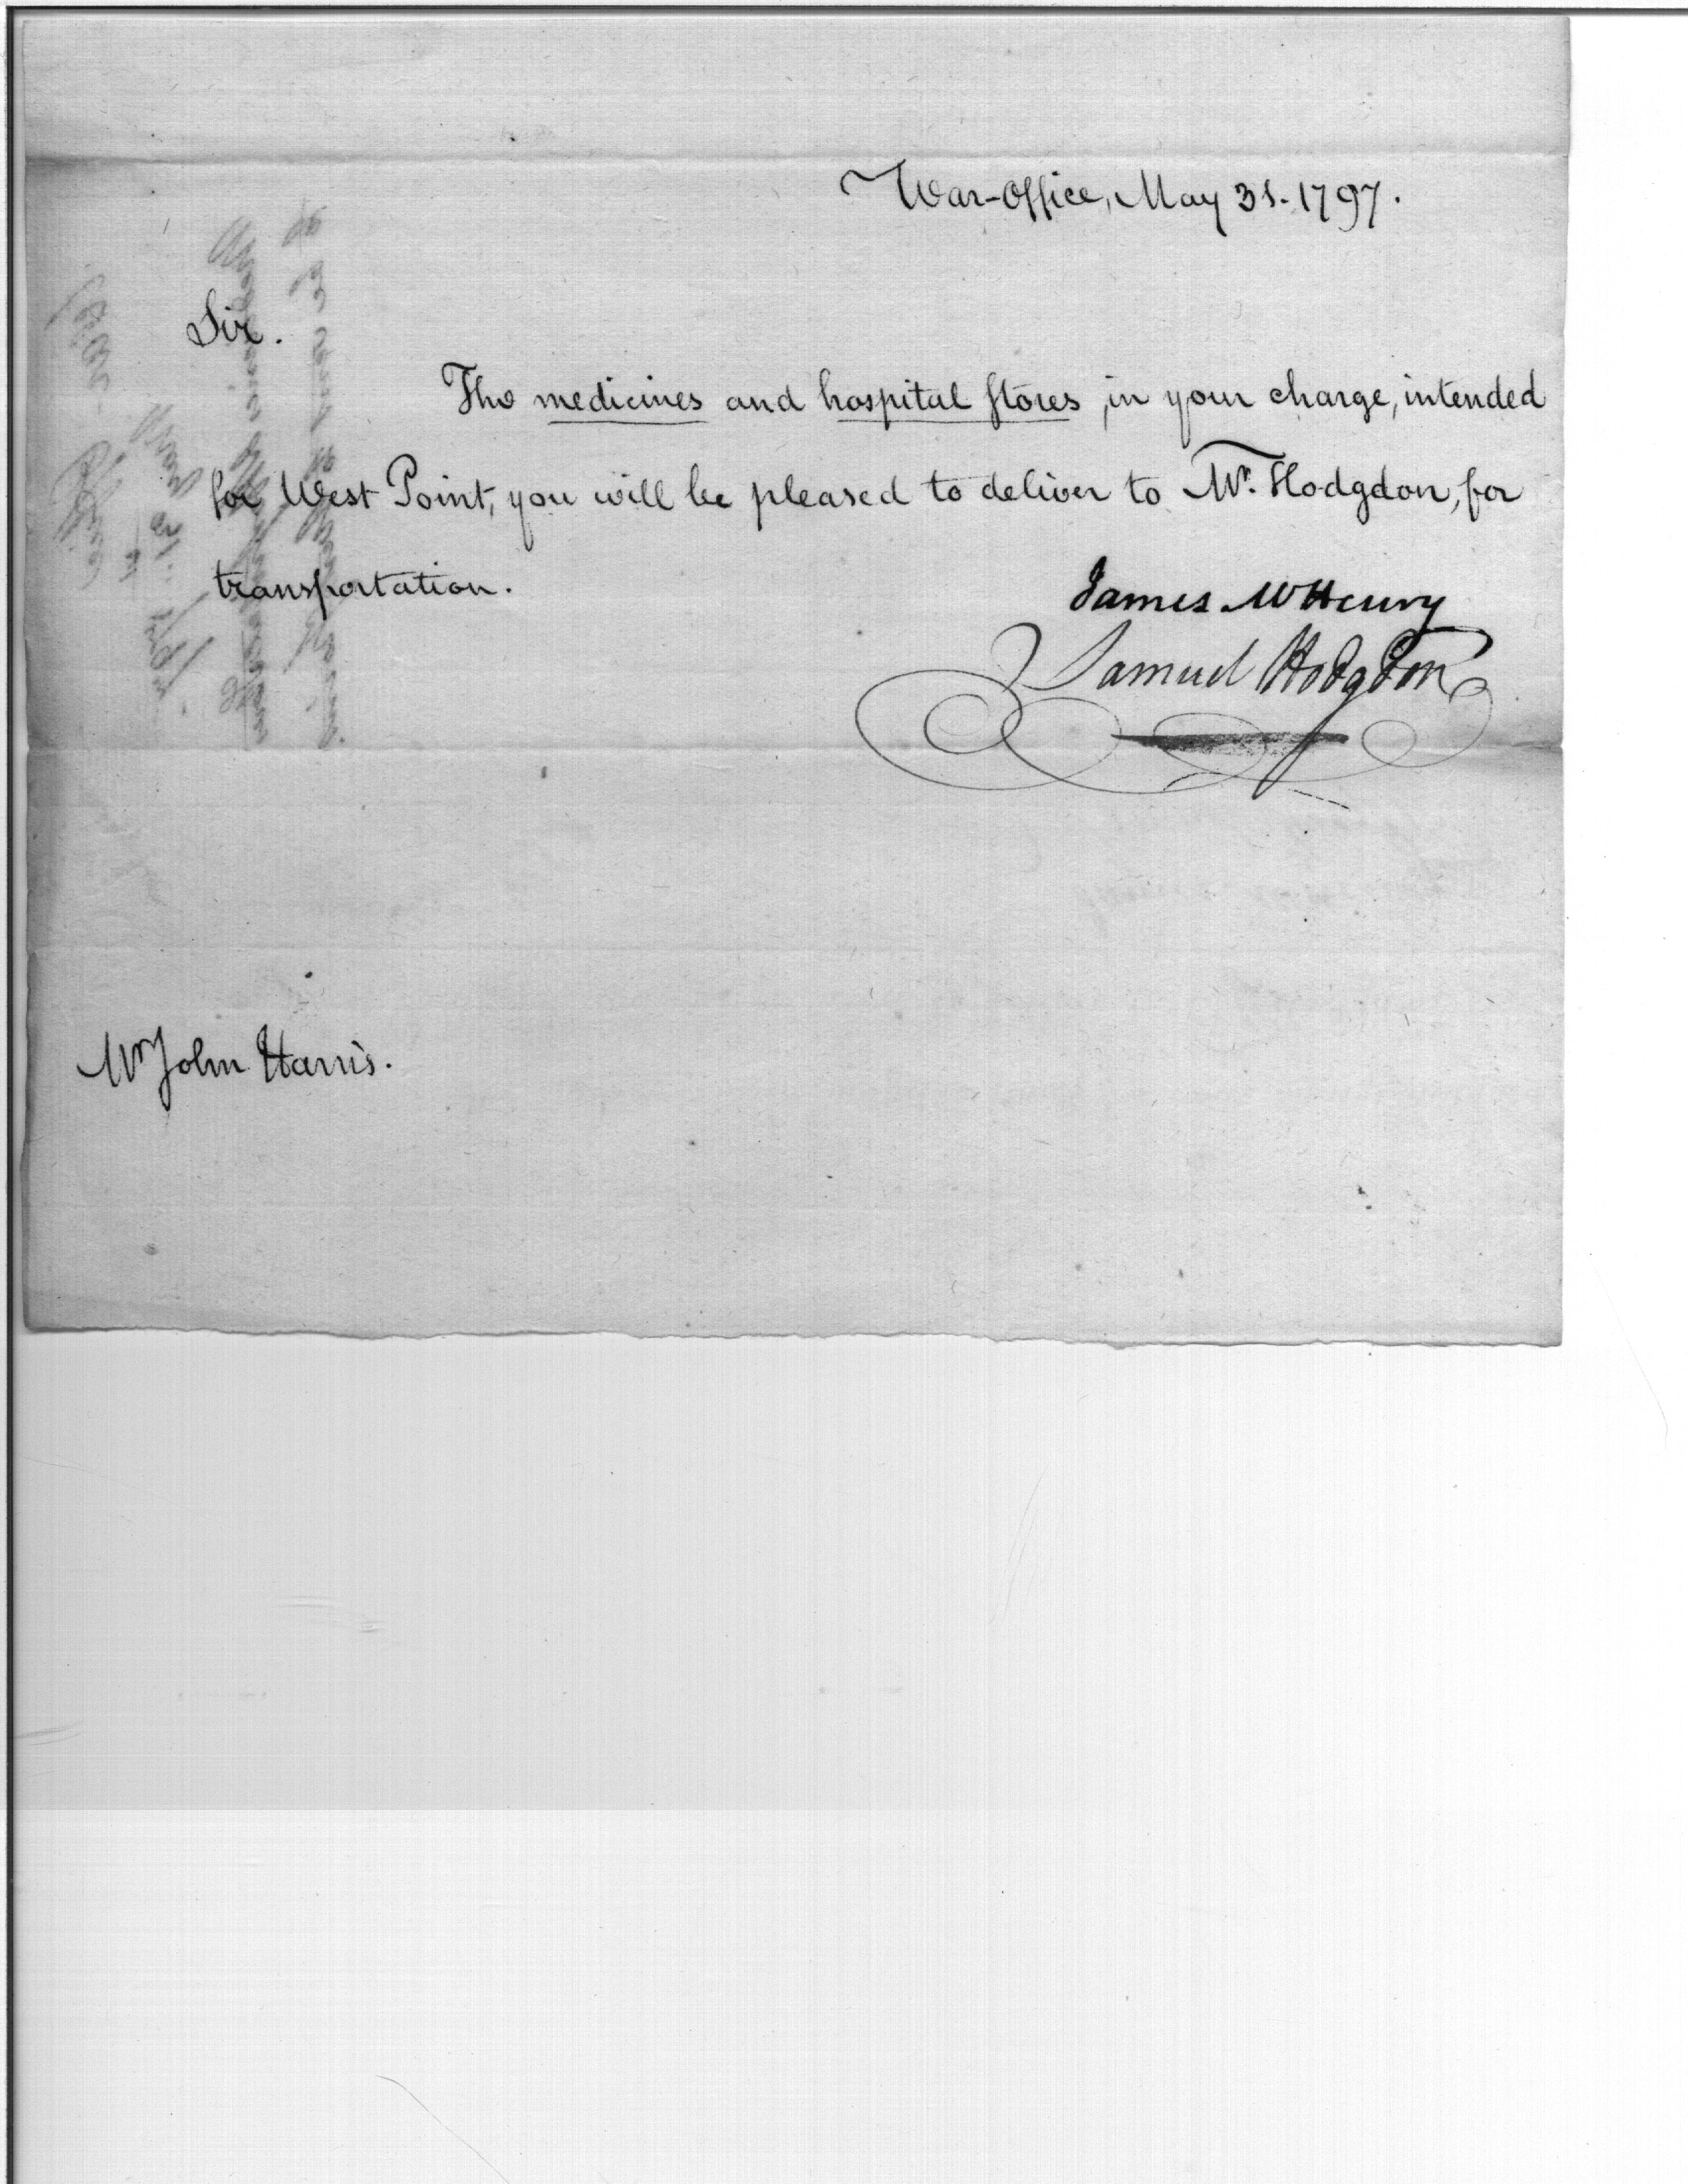 War-Office, May 31. 1797.
Sir.
The medicines and hospital stores, in your charge, intended
for West Point, you will be pleased to deliver to Mr. Hodgdon, for
transportation.
James McHenry
Samuel Hodgdon
Mr John Harris.